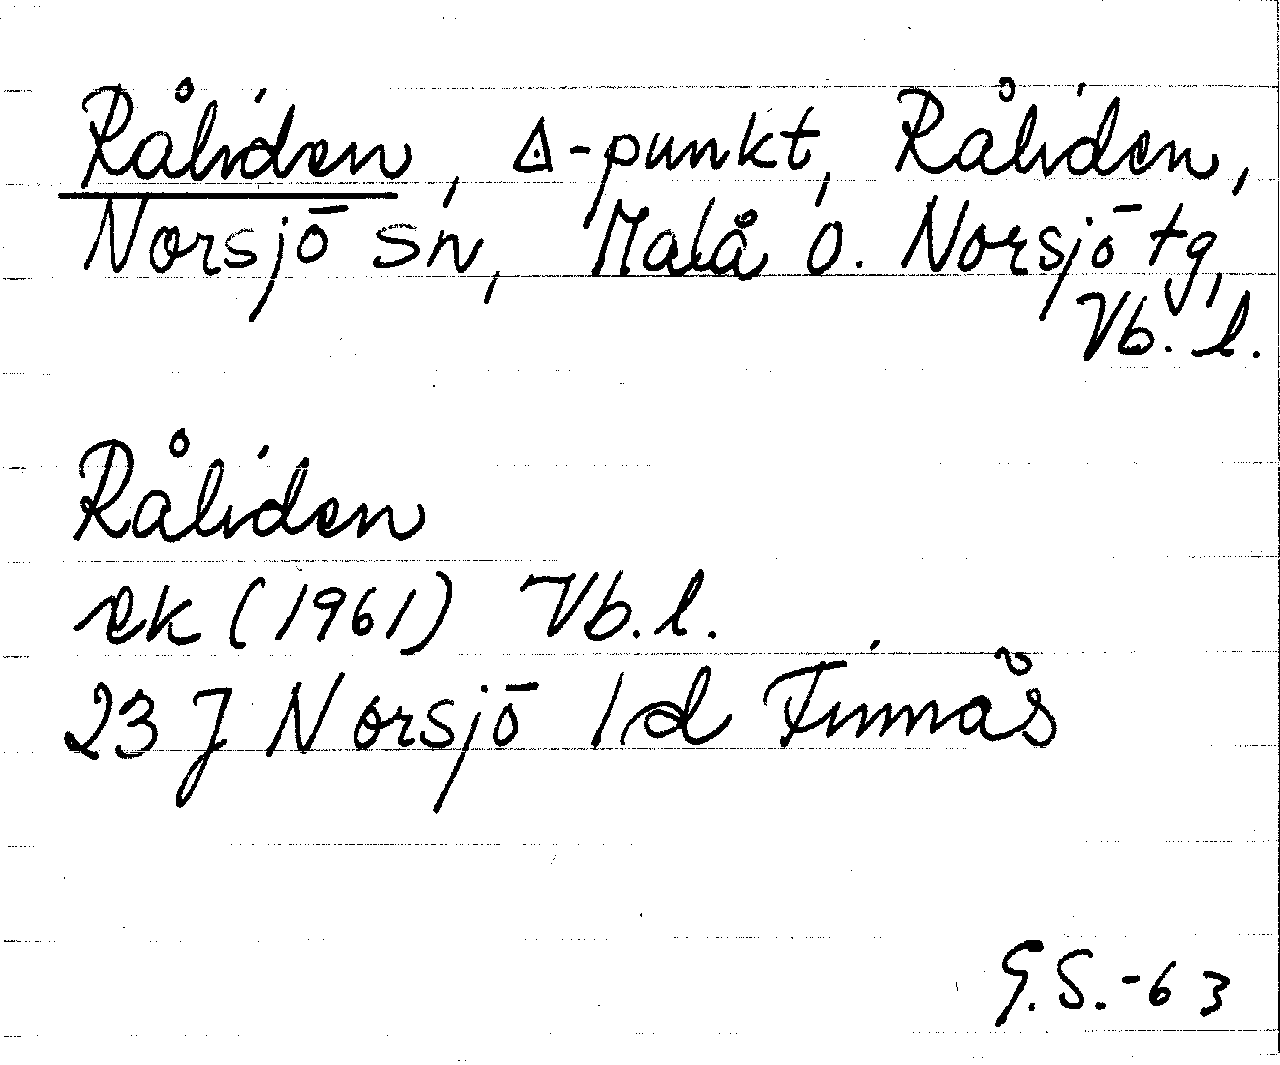 Råliden, ∆-punkt, Råliden,
Norsjö sn, Malå o. Norsjö tg,
Vb. l.
Råliden
ek (1961) Vb. l.
23 J Norsjö 1 d Finnås
G.S. -63